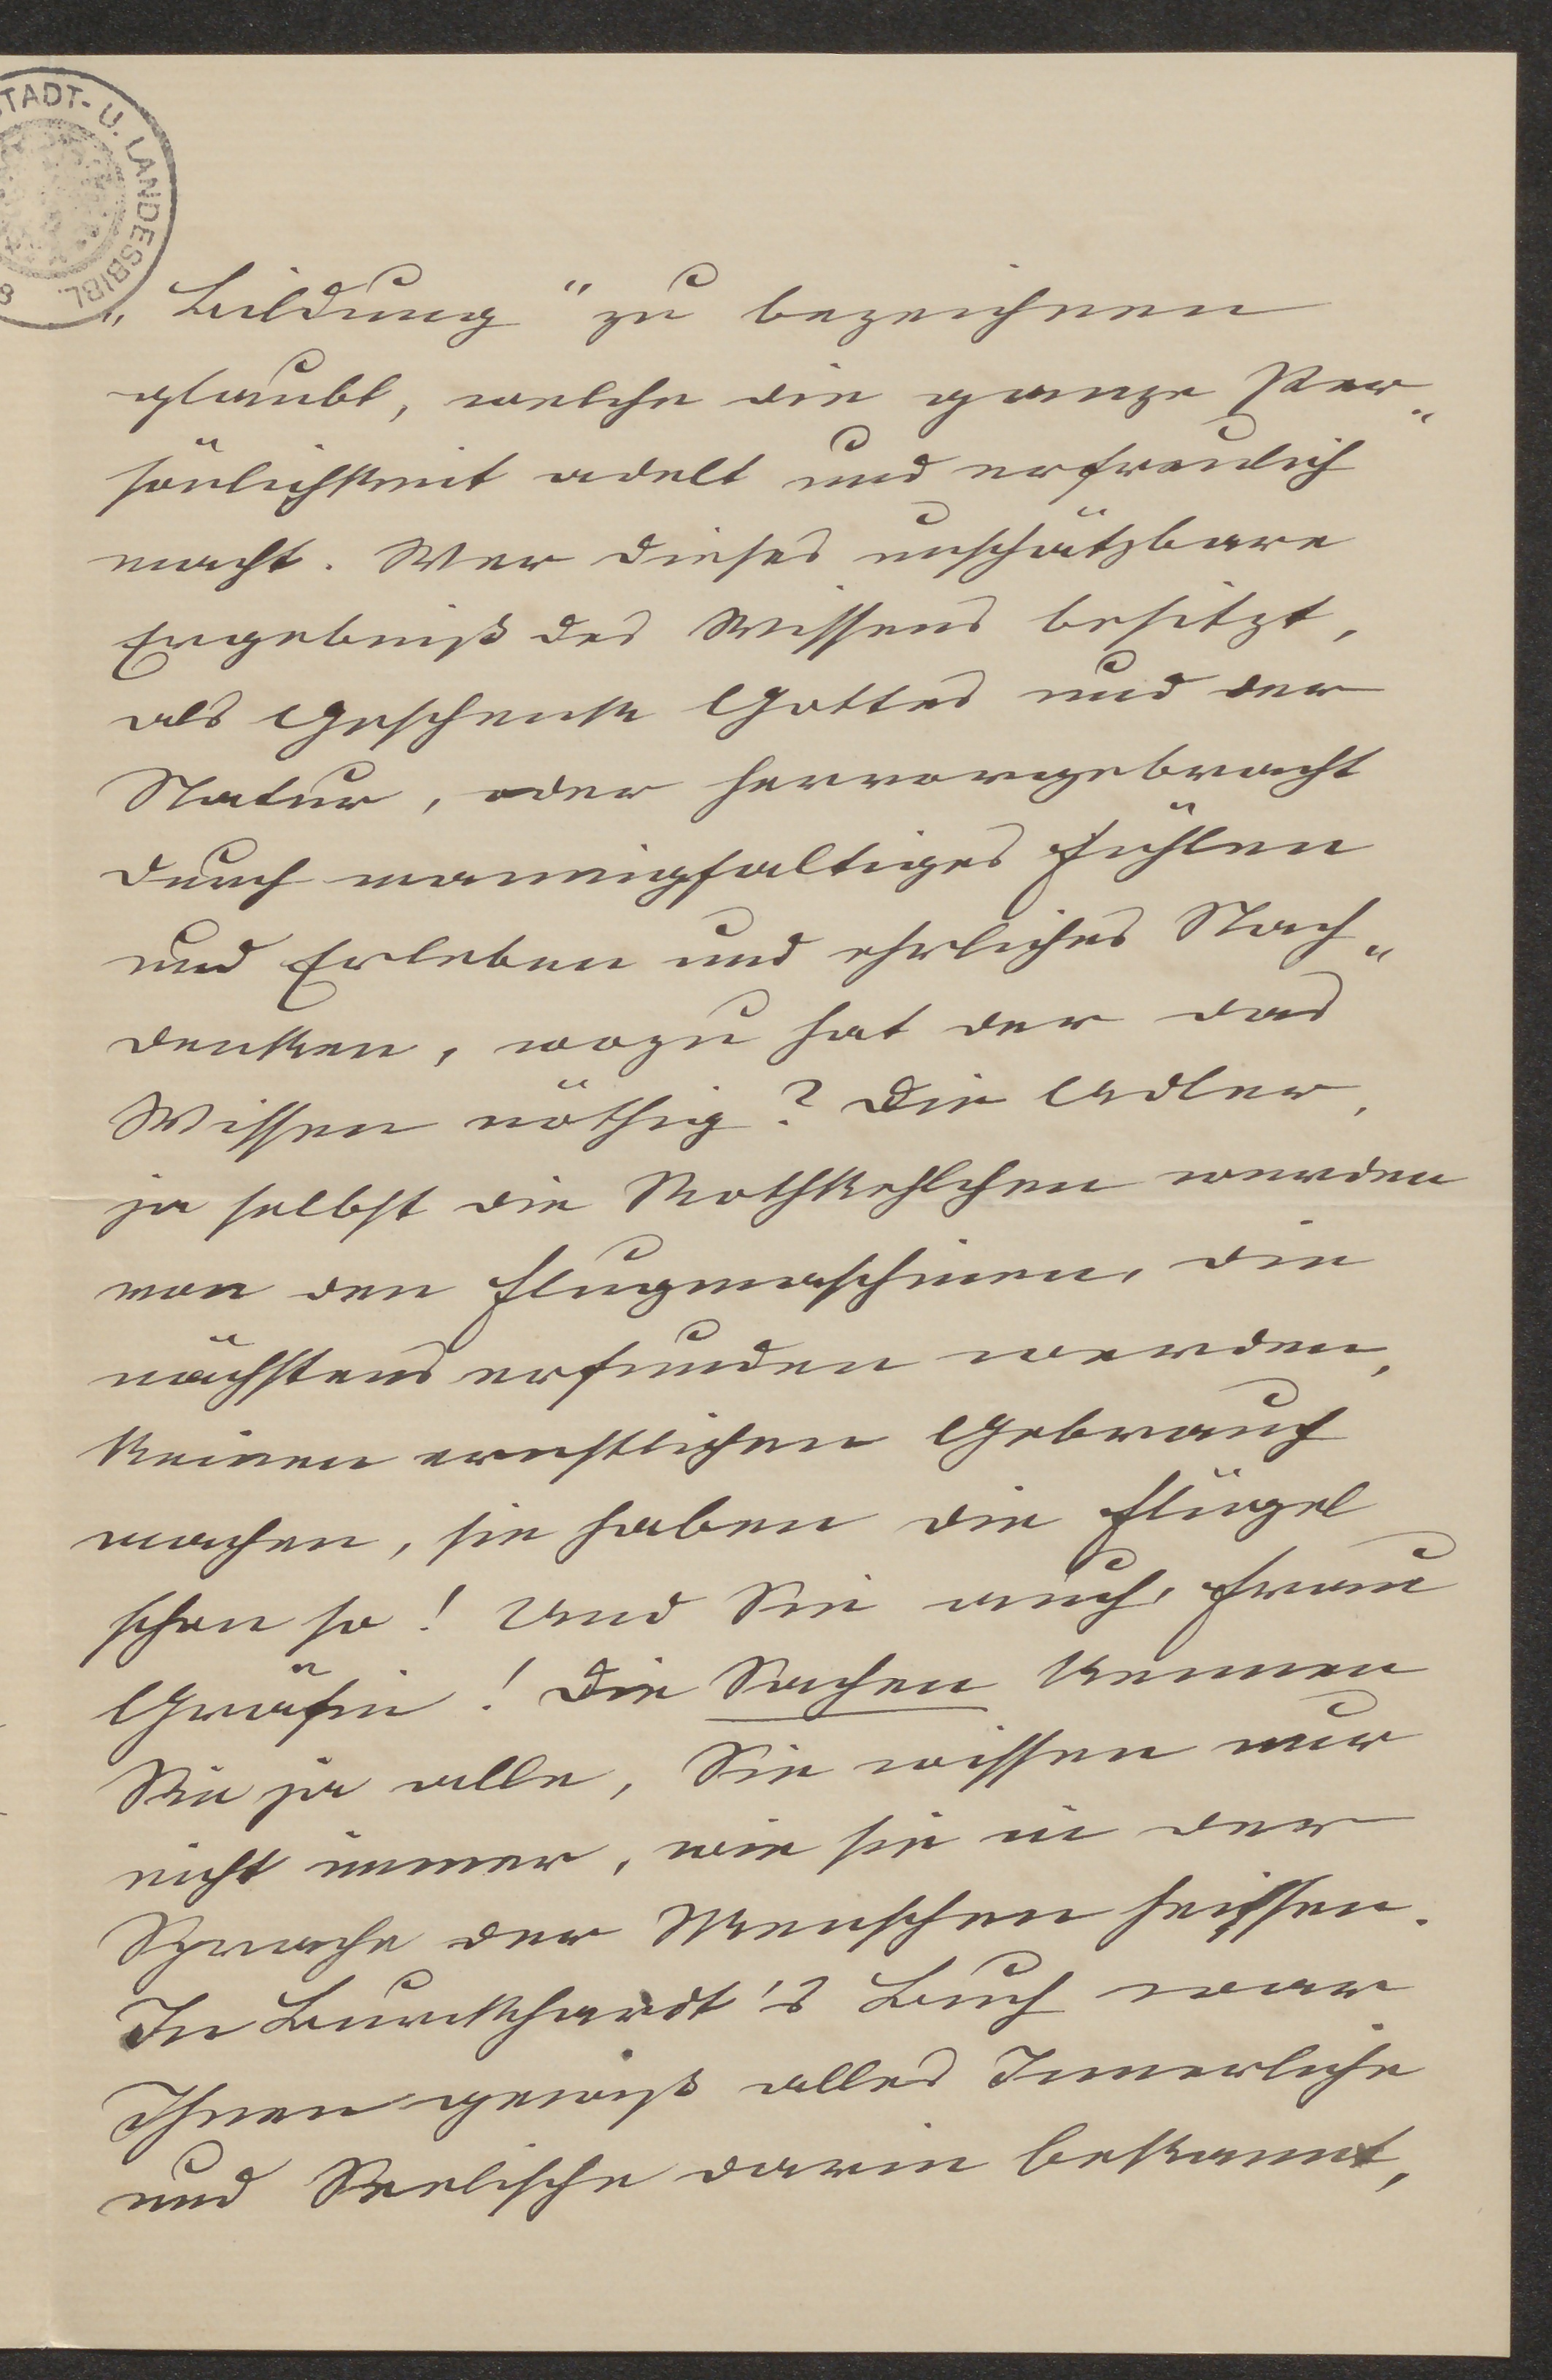 STADT- U. LANDESBIBL.
„Bildung" zu bezeichnen
glaubt, welche die ganze Per„
sönlichkeit adelt und erfreulich
macht. Wer dieses unschätzbare
Ergebniß des Wissens besitzt,
als Geschenk Gottes und der
Natur, oder hervorgebracht
durch mannigfaltiges Fühlen
und Erleben und ehrliches Nach„
denken, wozu hat der das
Wissen nöthig? Die Adler,
ja selbst die Rothkehlchen werden
von den Flugmaschinen, die
nächstens erfunden werden,
keinen ernstlichen Gebrauch
machen, sie haben die Flügel
schon so! Und Sie auch, Frau
Gräfin! Die Sachen kennen
Sie ja alle, Sie wissen nur
nicht immer, wie sie in der
Sprache der Menschen heissen.
In Burckhardt's Buch war
Ihnen gewiß alles Innerliche
und Seelische darin bekannt,